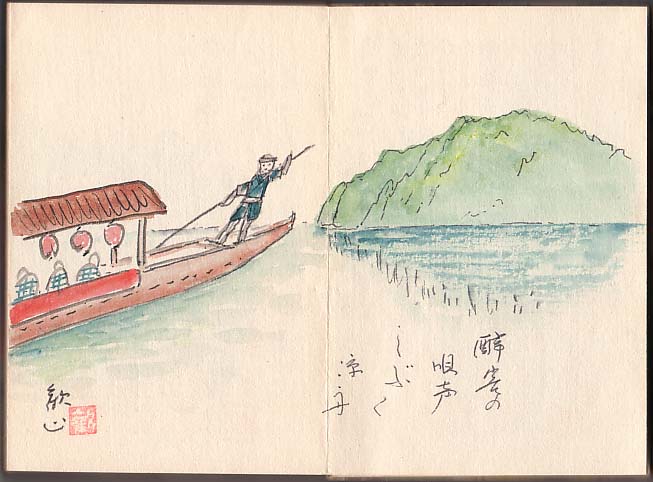 酔客の
唄声
しぶく
涼舟